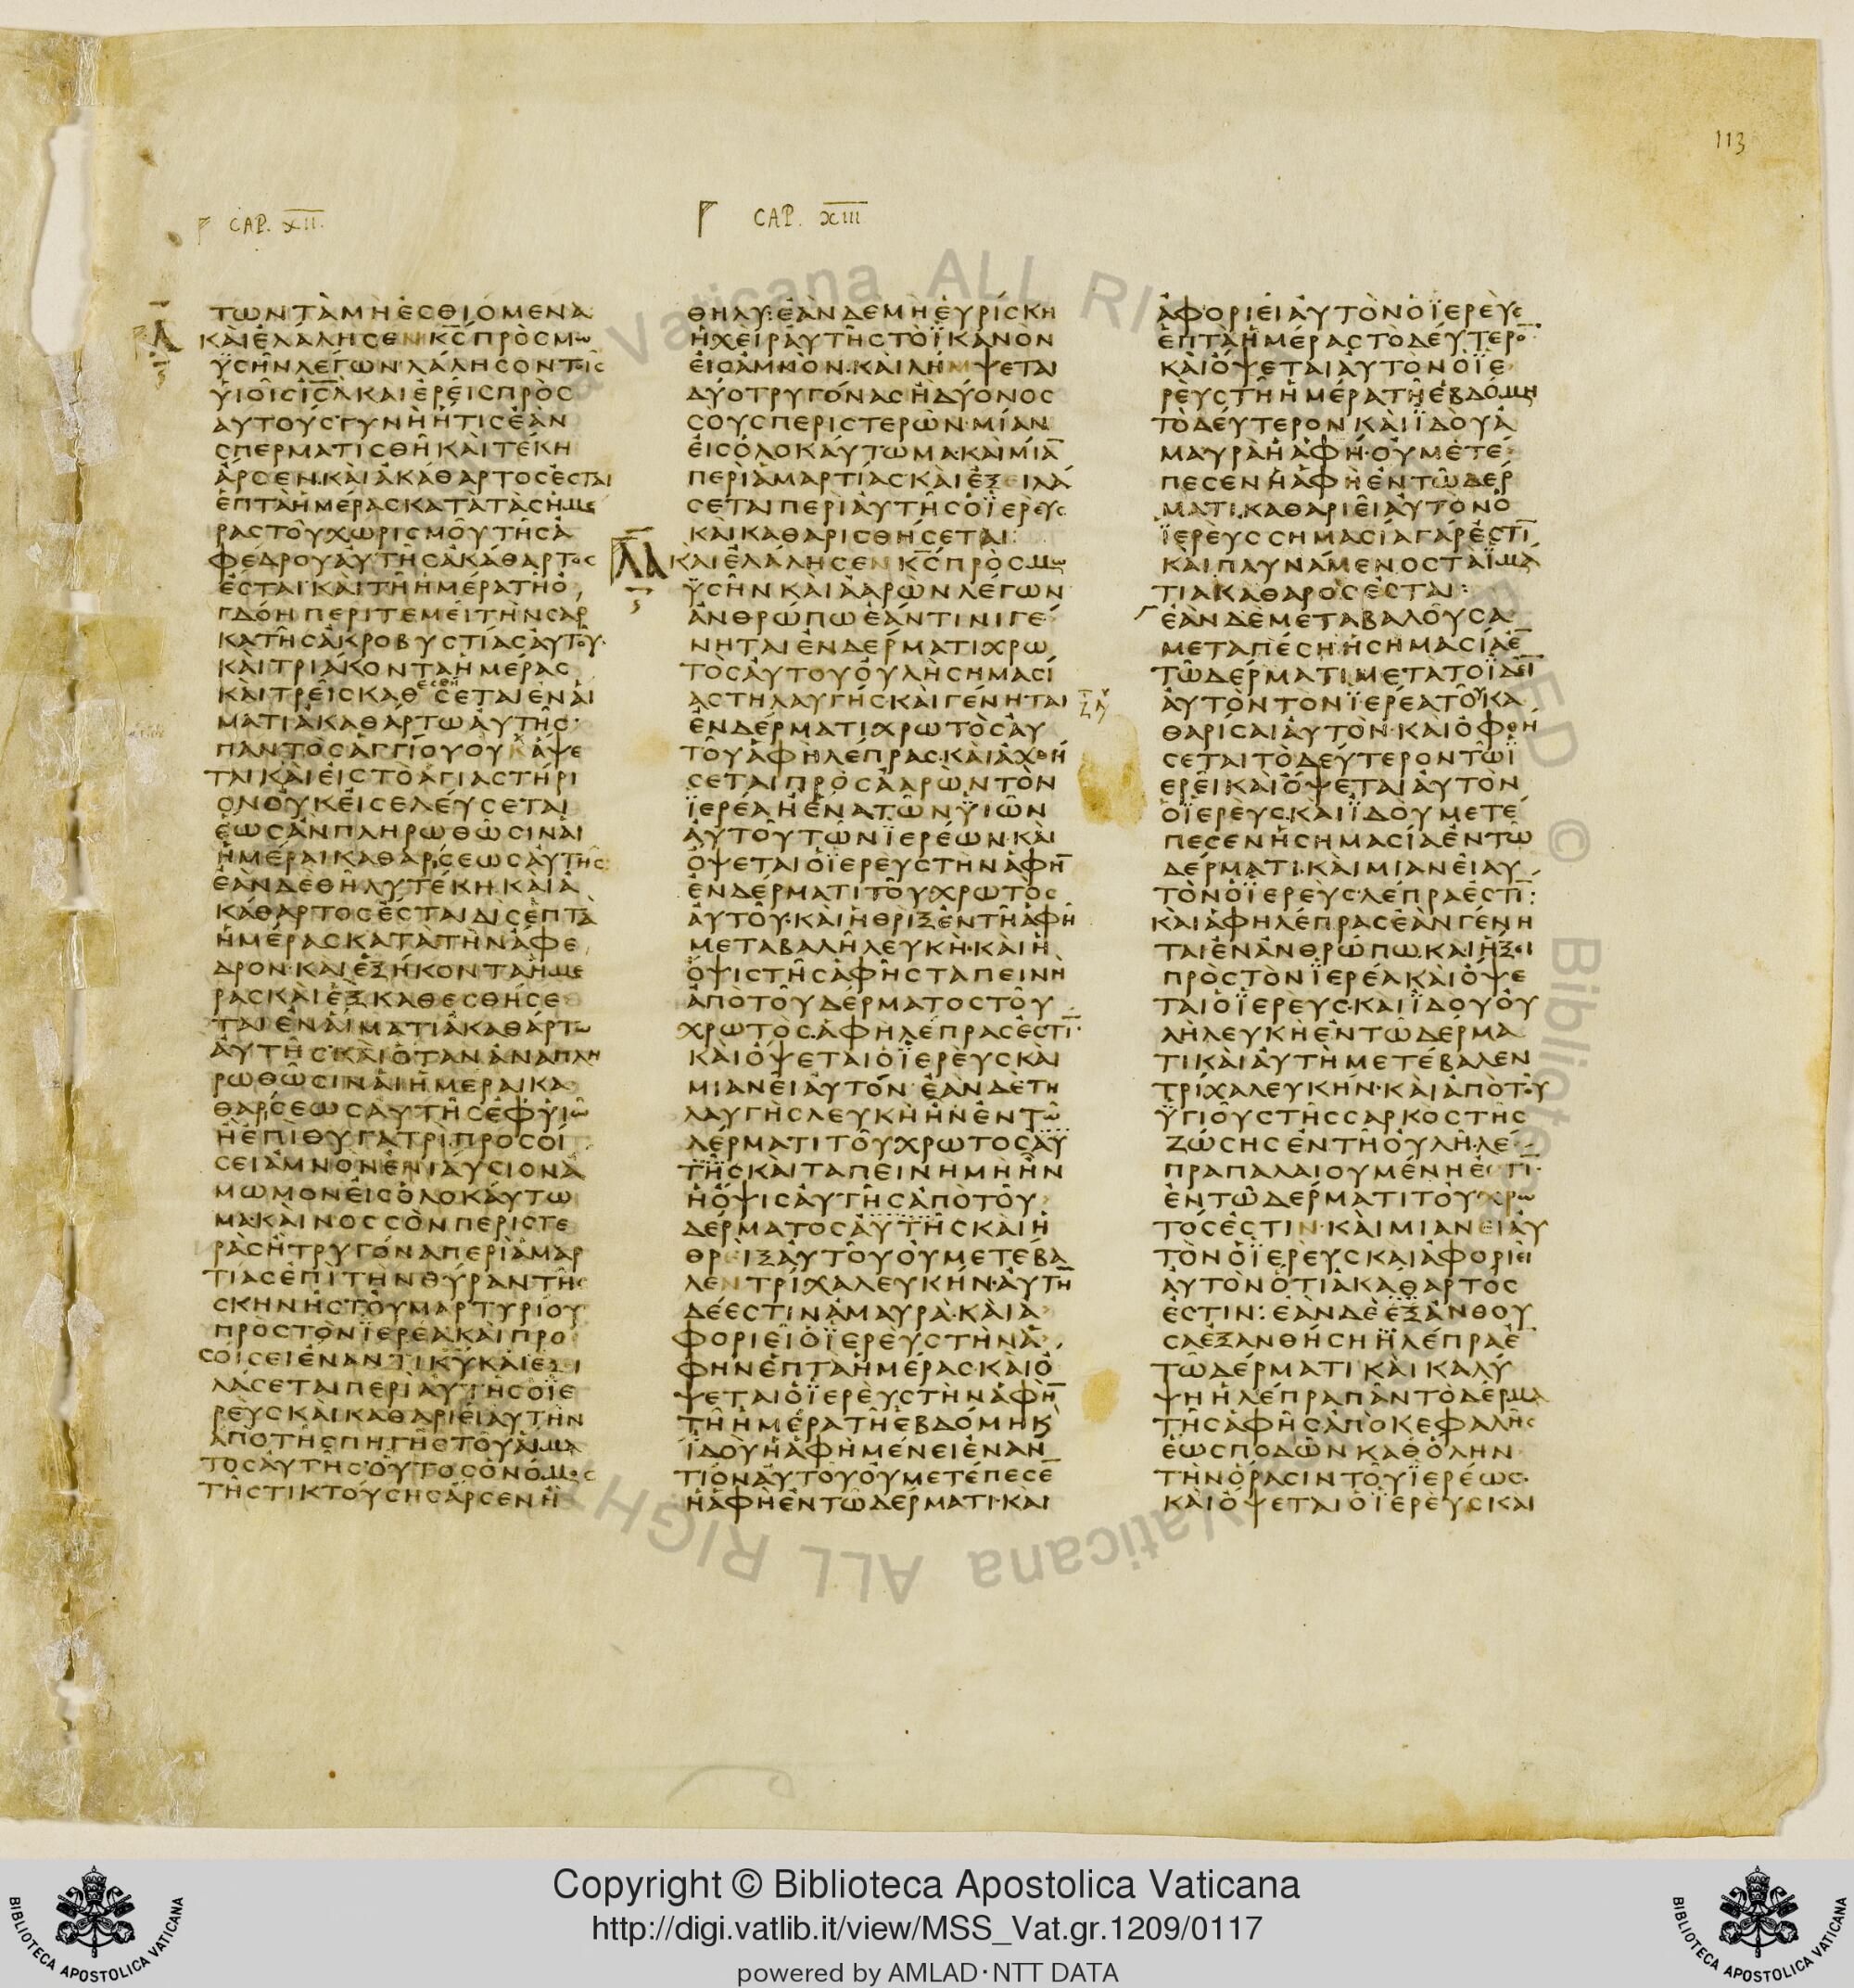 113
CAP. XII.
ΤΩΝΤΑΜΗΕΣΘΙΟΜΕΝΑ
ΚΑΙΕΛΑΛΗΣΕΝΚΣΠΡΟΣΜΩ
ΥΣΗΝΛΕΓΩΝΛΑΛΗΣΟΝΤΟΙΣ
ΥΙΟΙΣΙΣΛΚΑΙΕΡΕΙΣΠΡΟΣ
ΑΥΤΟΥΣΓΥΝΗΗΤΙΣΕΑΝ
ΣΠΕΡΜΑΤΙΣΘΗΚΑΙΤΕΚΗ
ΑΡΣΕΝΚΑΙΑΚΑΘΑΡΤΟΣΕΣΤΑΙ
ΕΠΤΑΗΜΕΡΑΣΚΑΤΑΤΑΣΗΜΕ
ΡΑΣΤΟΥΧΩΡΙΣΜΟΥΤΗΣΑ
ΦΕΔΡΟΥΑΥΤΗΣΑΚΑΘΑΡΤΟΣ
ΕΣΤΑΙΚΑΙΤΗΗΜΕΡΑΤΗΟ
ΓΔΟΗΠΕΡΙΤΕΜΕΙΤΗΝΣΑΡ
ΚΑΤΗΣΑΚΡΟΒΥΣΤΙΑΣΑΥΤΟΥ
ΚΑΙΤΡΙΑΚΟΝΤΑΗΜΕΡΑΣ
ΚΑΙΤΡΕΙΣΚΑΘΕΣΘΗΣΕΤΑΙΕΝΑΙ
ΜΑΤΙΑΚΑΘΑΡΤΩΑΥΤΗΣ
ΠΑΝΤΟΣΑΓΓΙΟΥΟΥΧΑΨΕ
ΤΑΙΚΑΙΕΙΣΤΟΑΓΙΑΣΤΗΡΙ
ΟΝΟΥΚΕΙΣΕΛΕΥΣΕΤΑΙ
ΕΩΣΑΝΠΛΗΡΩΘΩΣΙΝΑΙ
ΗΜΕΡΑΙΚΑΘΑΡΣΕΩΣΑΥΤΗΣ
ΕΑΝΔΕΘΗΛΥΤΕΚΗΚΑΙΑ
ΚΑΘΑΡΤΟΣΕΣΤΑΙΔΙΣΕΠΤΑ
ΗΜΕΡΑΣΚΑΤΑΤΗΝΑΦΕ
ΔΡΟΝΚΑΙΕΞΗΚΟΝΤΑΗΜΕ
ΡΑΣΚΑΙΕΞΚΑΘΕΣΘΗΣΕ
ΤΑΙΕΝΑΙΜΑΤΙΑΚΑΘΑΡΤΩ
ΑΥΤΗΣΚΑΙΟΤΑΝΑΝΑΠΛΗ
ΡΩΘΩΣΙΝΑΙΗΜΕΡΑΙΚΑ
ΘΑΡΣΕΩΣΑΥΤΗΣΕΦΥΙΩ
ΗΕΠΙΘΥΓΑΤΡΙΠΡΟΣΟΙ
ΣΕΙΑΜΝΟΝΕΝΙΑΥΣΙΟΝΑ
ΜΩΜΟΝΕΙΣΟΛΟΚΑΥΤΩ
ΜΑΚΑΙΝΟΣΣΟΝΠΕΡΙΣΤΕ
ΡΑΣΗΤΡΥΓΟΝΑΠΕΡΙΑΜΑΡ
ΤΙΑΣΕΠΙΤΗΝΘΥΡΑΝΤΗΣ
ΣΚΗΝΗΣΤΟΥΜΑΡΤΥΡΙΟΥ
ΠΡΟΣΤΟΝΪΕΡΕΑΚΑΙΠΡΟ
ΣΟΙΣΕΙΕΝΑΝΤΙΚΥΚΑΙΕΞΙ
ΛΑΣΕΤΑΙΠΕΡΙΑΥΤΗΣΟΪΕ
ΡΕΥΣΚΑΙΚΑΘΑΡΙΕΙΑΥΤΗΝ
ΑΠΟΤΗΣΠΗΓΗΣΤΟΥΑΙΜΑ
ΤΟΣΑΥΤΗΣΟΥΤΟΣΟΝΟΜΟΣ
ΤΗΣΤΙΚΤΟΥΣΗΣΑΡΣΕΝΗ
CAP. XIII
ΘΗΛΥ:ΕΑΝΔΕΜΗΕΥΡΙΣΚΗ
ΗΧΕΙΡΑΥΤΗΣΤΟΪΚΑΝΟΝ
ΕΙΣΑΜΝΟΝΚΑΙΛΗΜΨΕΤΑΙ
ΔΥΟΤΡΥΓΟΝΑΣΗΔΥΟΝΟΣ
ΣΟΥΣΠΕΡΙΣΤΕΡΩΝΜΙΑΝ
ΕΙΣΟΛΟΚΑΥΤΩΜΑΚΑΙΜΙΑ̅
ΠΕΡΙΑΜΑΡΤΙΑΣΚΑΙΕΞΕΙΛΑ
ΣΕΤΑΙΠΕΡΙΑΥΤΗΣΟΪΕΡΕΥΣ
ΚΑΙΚΑΘΑΡΙΣΘΗΣΕΤΑΙ:
ΚΑΙΕΛΑΛΗΣΕΝΚΣΠΡΟΣΜΩ
ΥΣΗΝΚΑΙΑΑΡΩΝΛΕΓΩΝ
ΑΝΘΡΩΠΩΕΑΝΤΙΝΙΓΕ
ΝΗΤΑΙΕΝΔΕΡΜΑΤΙΧΡΩ
ΤΟΣΑΥΤΟΥΟΥΛΗΣΗΜΑΣΙ
ΑΣΤΗΛΑΥΓΗΣΚΑΙΓΕΝΗΤΑΙ
ΕΝΔΕΡΜΑΤΙΧΡΩΤΟΣΑΥ
ΤΟΥΑΦΗΛΕΠΡΑΣΚΑΙΑΧΘΗ
ΣΕΤΑΙΠΡΟΣΑΑΡΩΝΤΟΝ
ΪΕΡΕΑΗΕΝΑΤΩΝΫΙΩΝ
ΑΥΤΟΥΤΩΝΪΕΡΕΩΝΚΑΙ
ΟΨΕΤΑΙΟΪΕΡΕΥΣΤΗΝΑΦΗ̅
ΕΝΔΕΡΜΑΤΙΤΟΥΧΡΩΤΟΣ
ΑΥΤΟΥΚΑΙΗΘΡΙΞΕΝΤΗΑΦΗ
ΜΕΤΑΒΑΛΗΛΕΥΚΗΚΑΙΗ
ΟΨΙΣΤΗΣΑΦΗΣΤΑΠΕΙΝΗ
ΑΠΟΤΟΥΔΕΡΜΑΤΟΣΤΟΥ
ΧΡΩΤΟΣΑΦΗΛΕΠΡΑΣΕΣΤΙ̅
ΚΑΙΟΨΕΤΑΙΟΪΕΡΕΥΣΚΑΙ
ΜΙΑΝΕΙΑΥΤΟΝΕΑΝΔΕΤΗ
ΛΑΥΓΗΣΛΕΥΚΗΗΝΕΝΤΩ
ΔΕΡΜΑΤΙΤΟΥΧΡΩΤΟΣΑΥ
ΤΗΣΚΑΙΤΑΠΕΙΝΗΜΗΗΝ
ΗΟΨΙΣΑΥΤΗΣΑΠΟΤΟΥ
ΔΕΡΜΑΤΟΣΑΥΤΗΣΚΑΙΗ
ΘΡΕΙΞΑΥΤΟΥΟΥΜΕΤΕΒΑ
ΛΕΝΤΡΙΧΑΛΕΥΚΗΝΑΥΤΗ
ΔΕΕΣΤΙΝΑΜΑΥΡΑΚΑΙΑ
ΦΟΡΙΕΙΟΪΕΡΕΥΣΤΗΝΑ
ΦΗΝΕΠΤΑΗΜΕΡΑΣΚΑΙΟ
ΨΕΤΑΙΟΪΕΡΕΥΣΤΗΝΑΦΗ̅
ΤΗΗΜΕΡΑΤΗΕΒΔΟΜΗΚ
ΪΔΟΥΗΑΦΗΜΕΝΕΙΕΝΑΝ
ΤΙΟΝΑΥΤΟΥΟΥΜΕΤΕΠΕΣΕ̅
ΗΑΦΗΕΝΤΩΔΕΡΜΑΤΙΚΑΙ
ΑΦΟΡΙΕΙΑΥΤΟΝΟΪΕΡΕΥΣ
ΕΠΤΑΗΜΕΡΑΣΤΟΔΕΥΤΕΡΟ̅
ΚΑΙΟΨΕΤΑΙΑΥΤΟΝΟΪΕ
ΡΕΥΣΤΗΗΜΕΡΑΤΗΕΒΔΟΜΗ
ΤΟΔΕΥΤΕΡΟΝΚΑΙΪΔΟΥΑ
ΜΑΥΡΑΗΑΦΗΟΥΜΕΤΕ
ΠΕΣΕΝΗΑΦΗΕΝΤΩΔΕΡ
ΜΑΤΙΚΑΘΑΡΙΕΙΑΥΤΟΝΟ
ΪΕΡΕΥΣΣΗΜΑΣΙΑΓΑΡΕΣΤΙ̅
ΚΑΙΠΛΥΝΑΜΕΝΟΣΤΑΪΜΑ
ΤΙΑΚΑΘΑΡΟΣΕΣΤΑΙ:
ΕΑΝΔΕΜΕΤΑΒΑΛΟΥΣΑ
ΜΕΤΑΠΕΣΗΗΣΗΜΑΣΙΑΕ̅
ΤΩΔΕΡΜΑΤΙΜΕΤΑΤΟΪΔΕΙ̅
ΑΥΤΟΝΤΟΝΪΕΡΕΑΤΟΥΚΑ
ΘΑΡΙΣΑΙΑΥΤΟΝΚΑΙΟΦΘΗ
ΣΕΤΑΙΤΟΔΕΥΤΕΡΟΝΤΩΪ
ΕΡΕΙΚΑΙΟΨΕΤΑΙΑΥΤΟΝ
ΟΪΕΡΕΥΣΚΑΙΪΔΟΥΜΕΤΕ
ΠΕΣΕΝΗΣΗΜΑΣΙΑΕΝΤΩ
ΔΕΡΜΑΤΙΚΑΙΜΙΑΝΕΙΑΥ
ΤΟΝΟΪΕΡΕΥΣΛΕΠΡΑΕΣΤΙ̅:
ΚΑΙΑΦΗΛΕΠΡΑΣΕΑΝΓΕΝΗ
ΤΑΙΕΝΑΝΘΡΩΠΩΚΑΙΗΞΕΙ
ΠΡΟΣΤΟΝΪΕΡΕΑΚΑΙΟΨΕ
ΤΑΙΟΪΕΡΕΥΣΚΑΙΪΔΟΥΟΥ
ΛΗΛΕΥΚΗΕΝΤΩΔΕΡΜΑ
ΤΙΚΑΙΑΥΤΗΜΕΤΕΒΑΛΕΝ
ΤΡΙΧΑΛΕΥΚΗΝΚΑΙΑΠΟΤΟΥ
ΫΓΙΟΥΣΤΗΣΣΑΡΚΟΣΤΗΣ
ΖΩΣΗΣΕΝΤΗΟΥΛΗΛΕ
ΠΡΑΠΑΛΑΙΟΥΜΕΝΗΕΣΤΙ̅
ΕΝΤΩΔΕΡΜΑΤΙΤΟΥΧΡΩ
ΤΟΣΕΣΤΙΝΚΑΙΜΙΑΝΕΙΑΥ
ΤΟΝΟΪΕΡΕΥΣΚΑΙΑΦΟΡΙΕΙ
ΑΥΤΟΝΟΤΙΑΚΑΘΑΡΤΟΣ
ΕΣΤΙΝ:ΕΑΝΔΕΕΞΑΝΘΟΥ
ΣΑΕΞΑΝΘΗΣΗΗΛΕΠΡΑΕ̅
ΤΩΔΕΡΜΑΤΙΚΑΙΚΑΛΥ
ΨΗΗΛΕΠΡΑΠΑΝΤΟΔΕΡΜΑ
ΤΗΣΑΦΗΣΑΠΟΚΕΦΑΛΗΣ
ΕΩΣΠΟΔΩΝΚΑΘΟΛΗΝ
ΤΗΝΟΡΑΣΙΝΤΟΥΪΕΡΕΩΣ
ΚΑΙΟΨΕΤΑΙΟΪΕΡΕΥΣΚΑΙ
Copyright © Biblioteca Apostolica Vaticana
http://digi.vatlib.it/view/MSS_Vat.gr.1209/0117
powered by AMLAD·NTT DATA
BIBLIOTECA APOSTOLICA VATICANA
BIBLIOTECA APOSTOLICA VATICANA